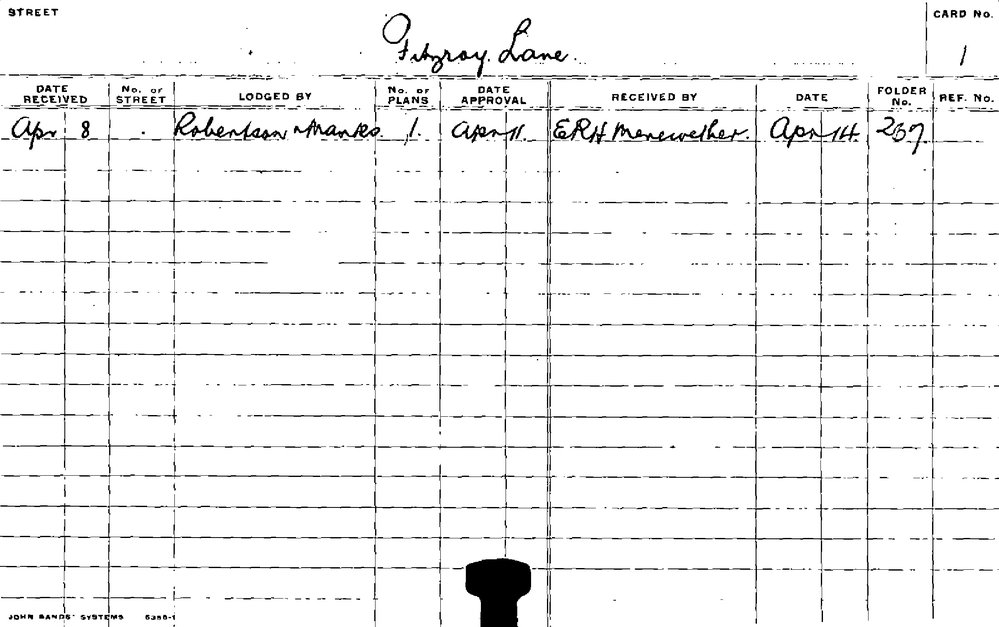 STREET
Fitzroy Lane.
CARD No.
1
DATE RECEIVED
No. OF STREET
LODGED BY
No. OF PLANS
DATE APPROVAL
RECEIVED BY
DATE
FOLDER No.
REF. No.
Apr 8 . Robertson & Marks. 1. Apr 11. ERH Merewether. Apr 14. 267.
JOHN SANDS' SYSTEMS